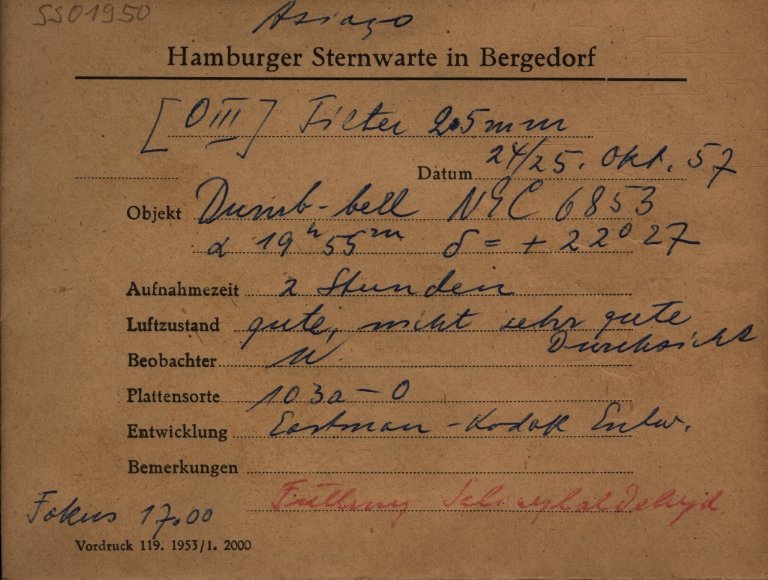 SS01950
Asiago
Hamburger Sternwarte in Bergedorf
[OIII] Filter 2.5mm
Datum 24/25. Okt. 57
Objekt Dumb-bell NGC 6853
α 19h 55m δ = + 22° 27
Aufnahmezeit 2 Stunden
Luftzustand gute, nicht sehr gute
Durchsicht
Beobachter W.
Plattensorte 103a-O
Entwicklung Eastman-Kodak Entw.
Bemerkungen
Füllung Salicylaldehyd
Fokus 17.00
Vordruck 119. 1953/1. 2000